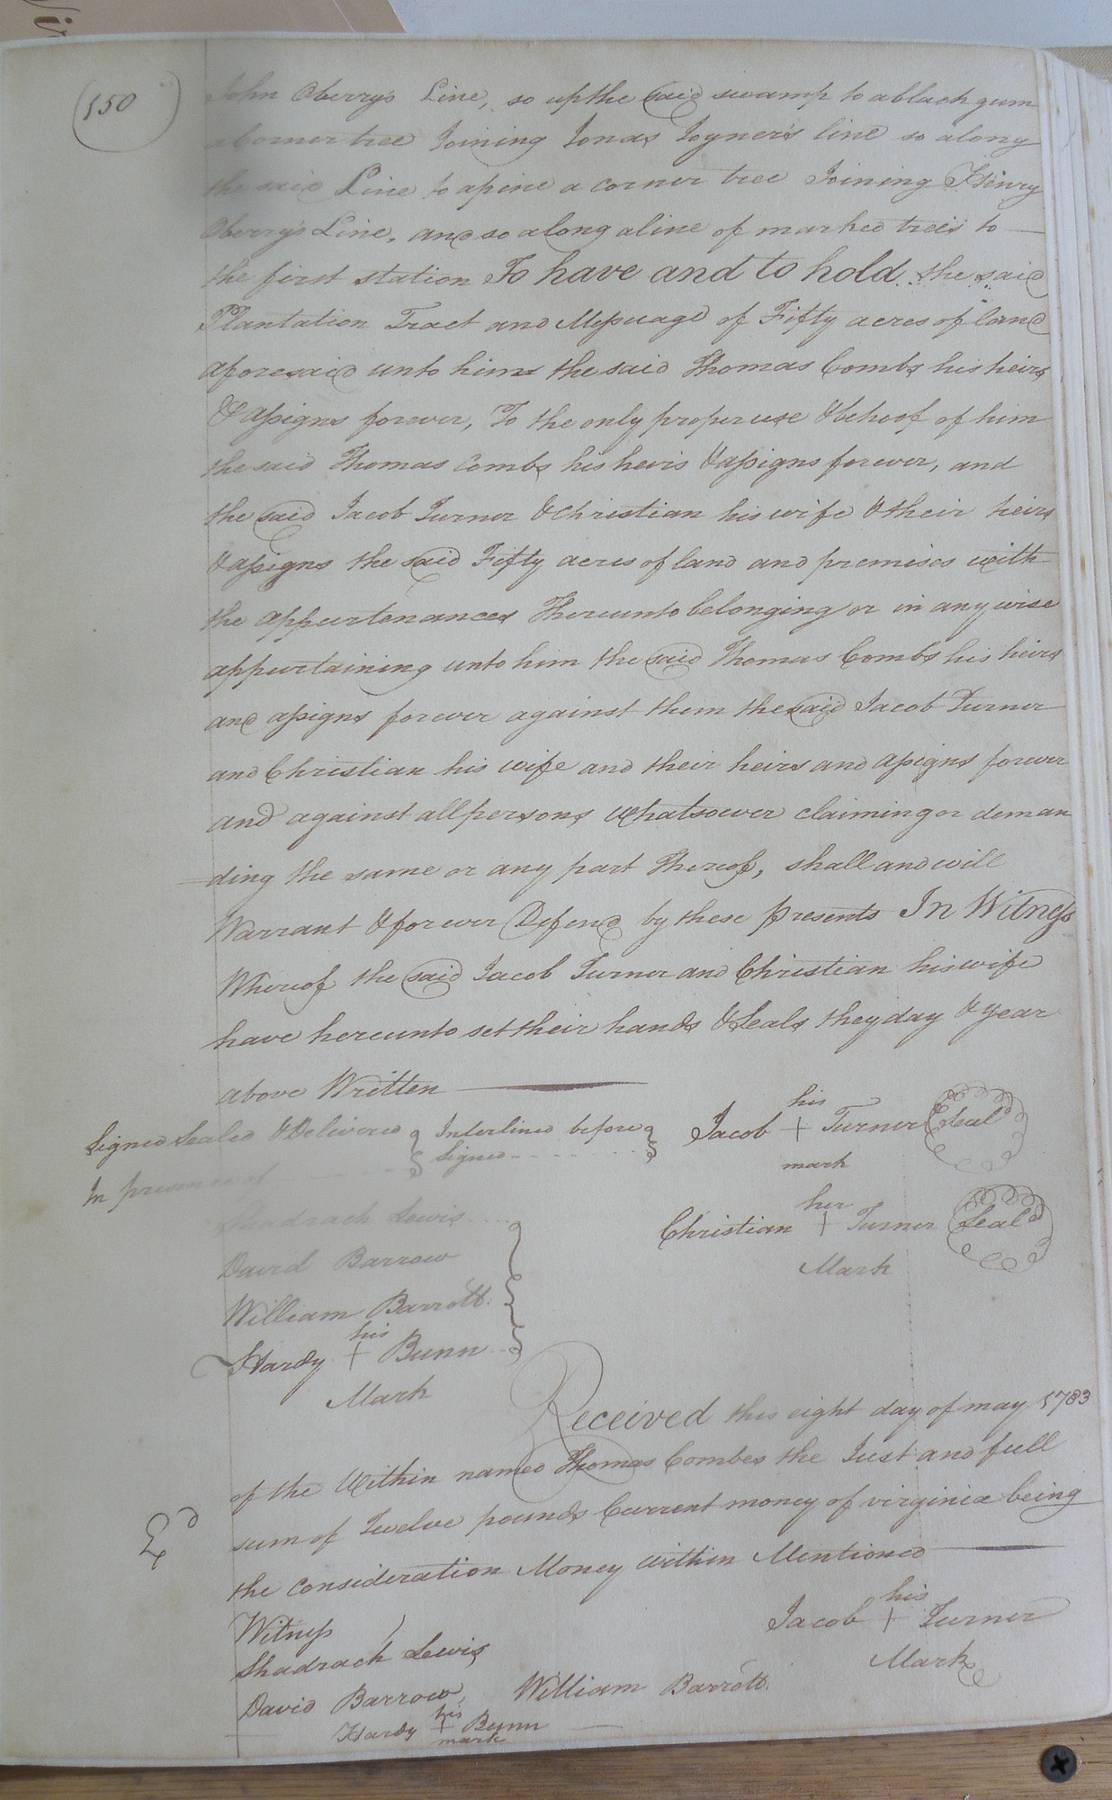 150
John Oberry's Line, so up the said swamp to a black gum
a corner tree Joining Jonas Joyner's line so along
the said Line to a pine a corner tree Joining Henry
Oberry's Line, and so along a line of marked trees to
the first station To have and to hold the said
Plantation Tract and Messuage of Fifty acres of land
aforesaid unto him the said Thomas Combs his heirs
& assigns forever, To the only proper use & behoof of him
the said Thomas Combs his heirs & assigns forever, and
the said Jacob Turner & Christian his wife & their heirs
& assigns the said Fifty acres of land and premises with
the appurtenances Thereunto belonging or in any wise
appurtaining unto him the said Thomas Combs his heirs
and assigns forever against them the said Jacob Turner
and Christian his wife and their heirs and assigns forever
and against all persons whatsoever claiming or deman
ding the same or any part Thereof, shall and will
Warrant & forever Defend by these presents In Witness
Whereof the said Jacob Turner and Christian his wife
have hereunto set their hands & Seals they day & year
above Written
Signed Sealed & Delivered Interlined before
In presence of signed
his
Jacob + Turner Seal
mark
Shadrach Lewis
her
Christian + Turner Seal
Mark
David Barrow
William Barrott
his
Hardy + Bunn
Mark
Received this eight day of may 1783
of the Within named Thomas Combes the Just and full
sum of Twelve pounds Current money of virginia being
the consideration Money within Mentioned
Witness
his
Jacob + Turner
Mark
Shadrach Lewis
David Barrow, William Barrott
his
Hardy + Bunn
mark